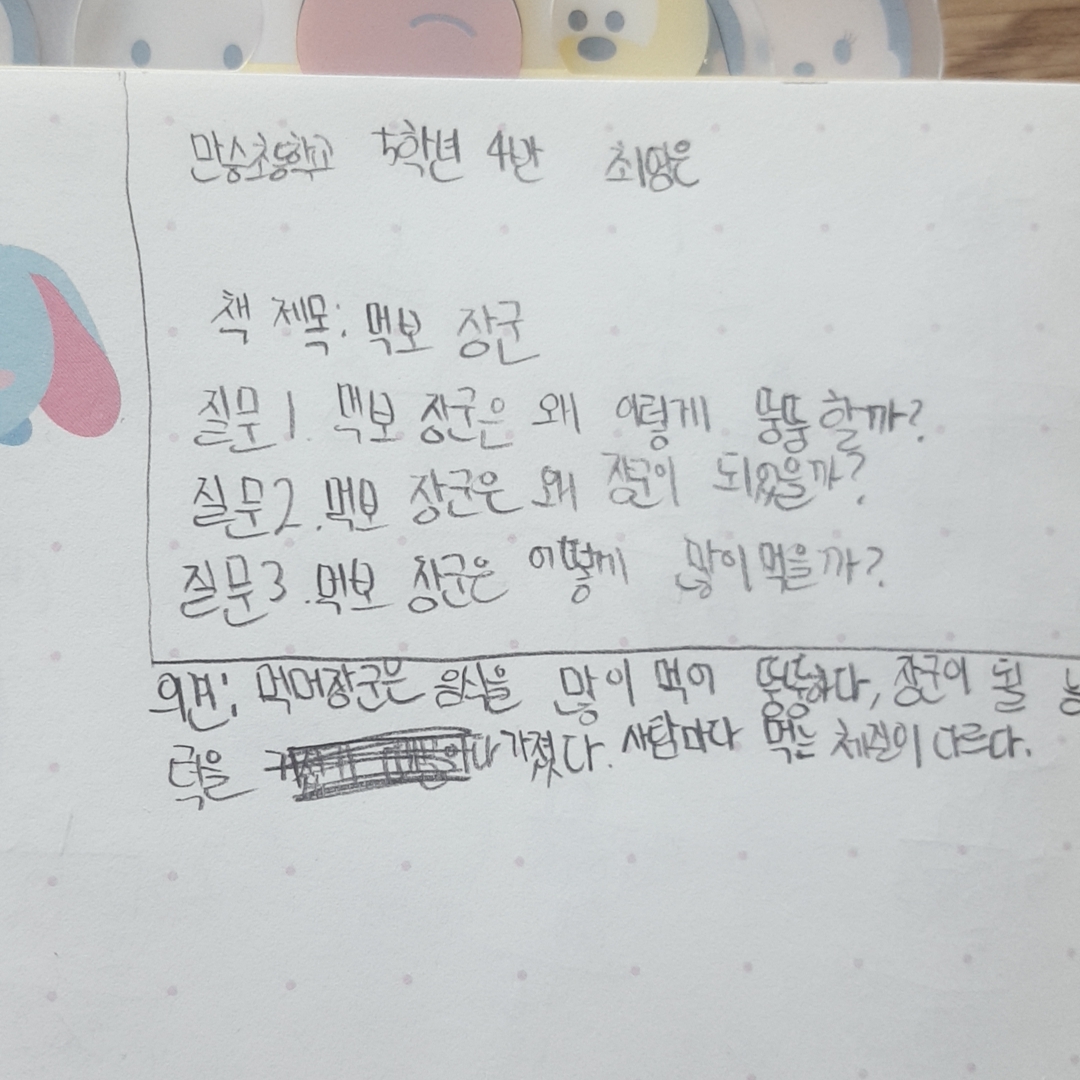 만승초등학교 5학년 4반 최영은
책 제목: 먹보 장군
질문1. 먹보 장군은 왜 이렇게 뚱뚱할까?
질문2. 먹보 장군은 왜 장군이 되었을까?
질문3. 먹보 장군은 어떻게 많이 먹을까?
의견: 먹머장군은 음식을 많이 먹어 뚱뚱하다, 장군이 될 능
력을 가졌다. 사람마다 먹는 체질이 다르다.